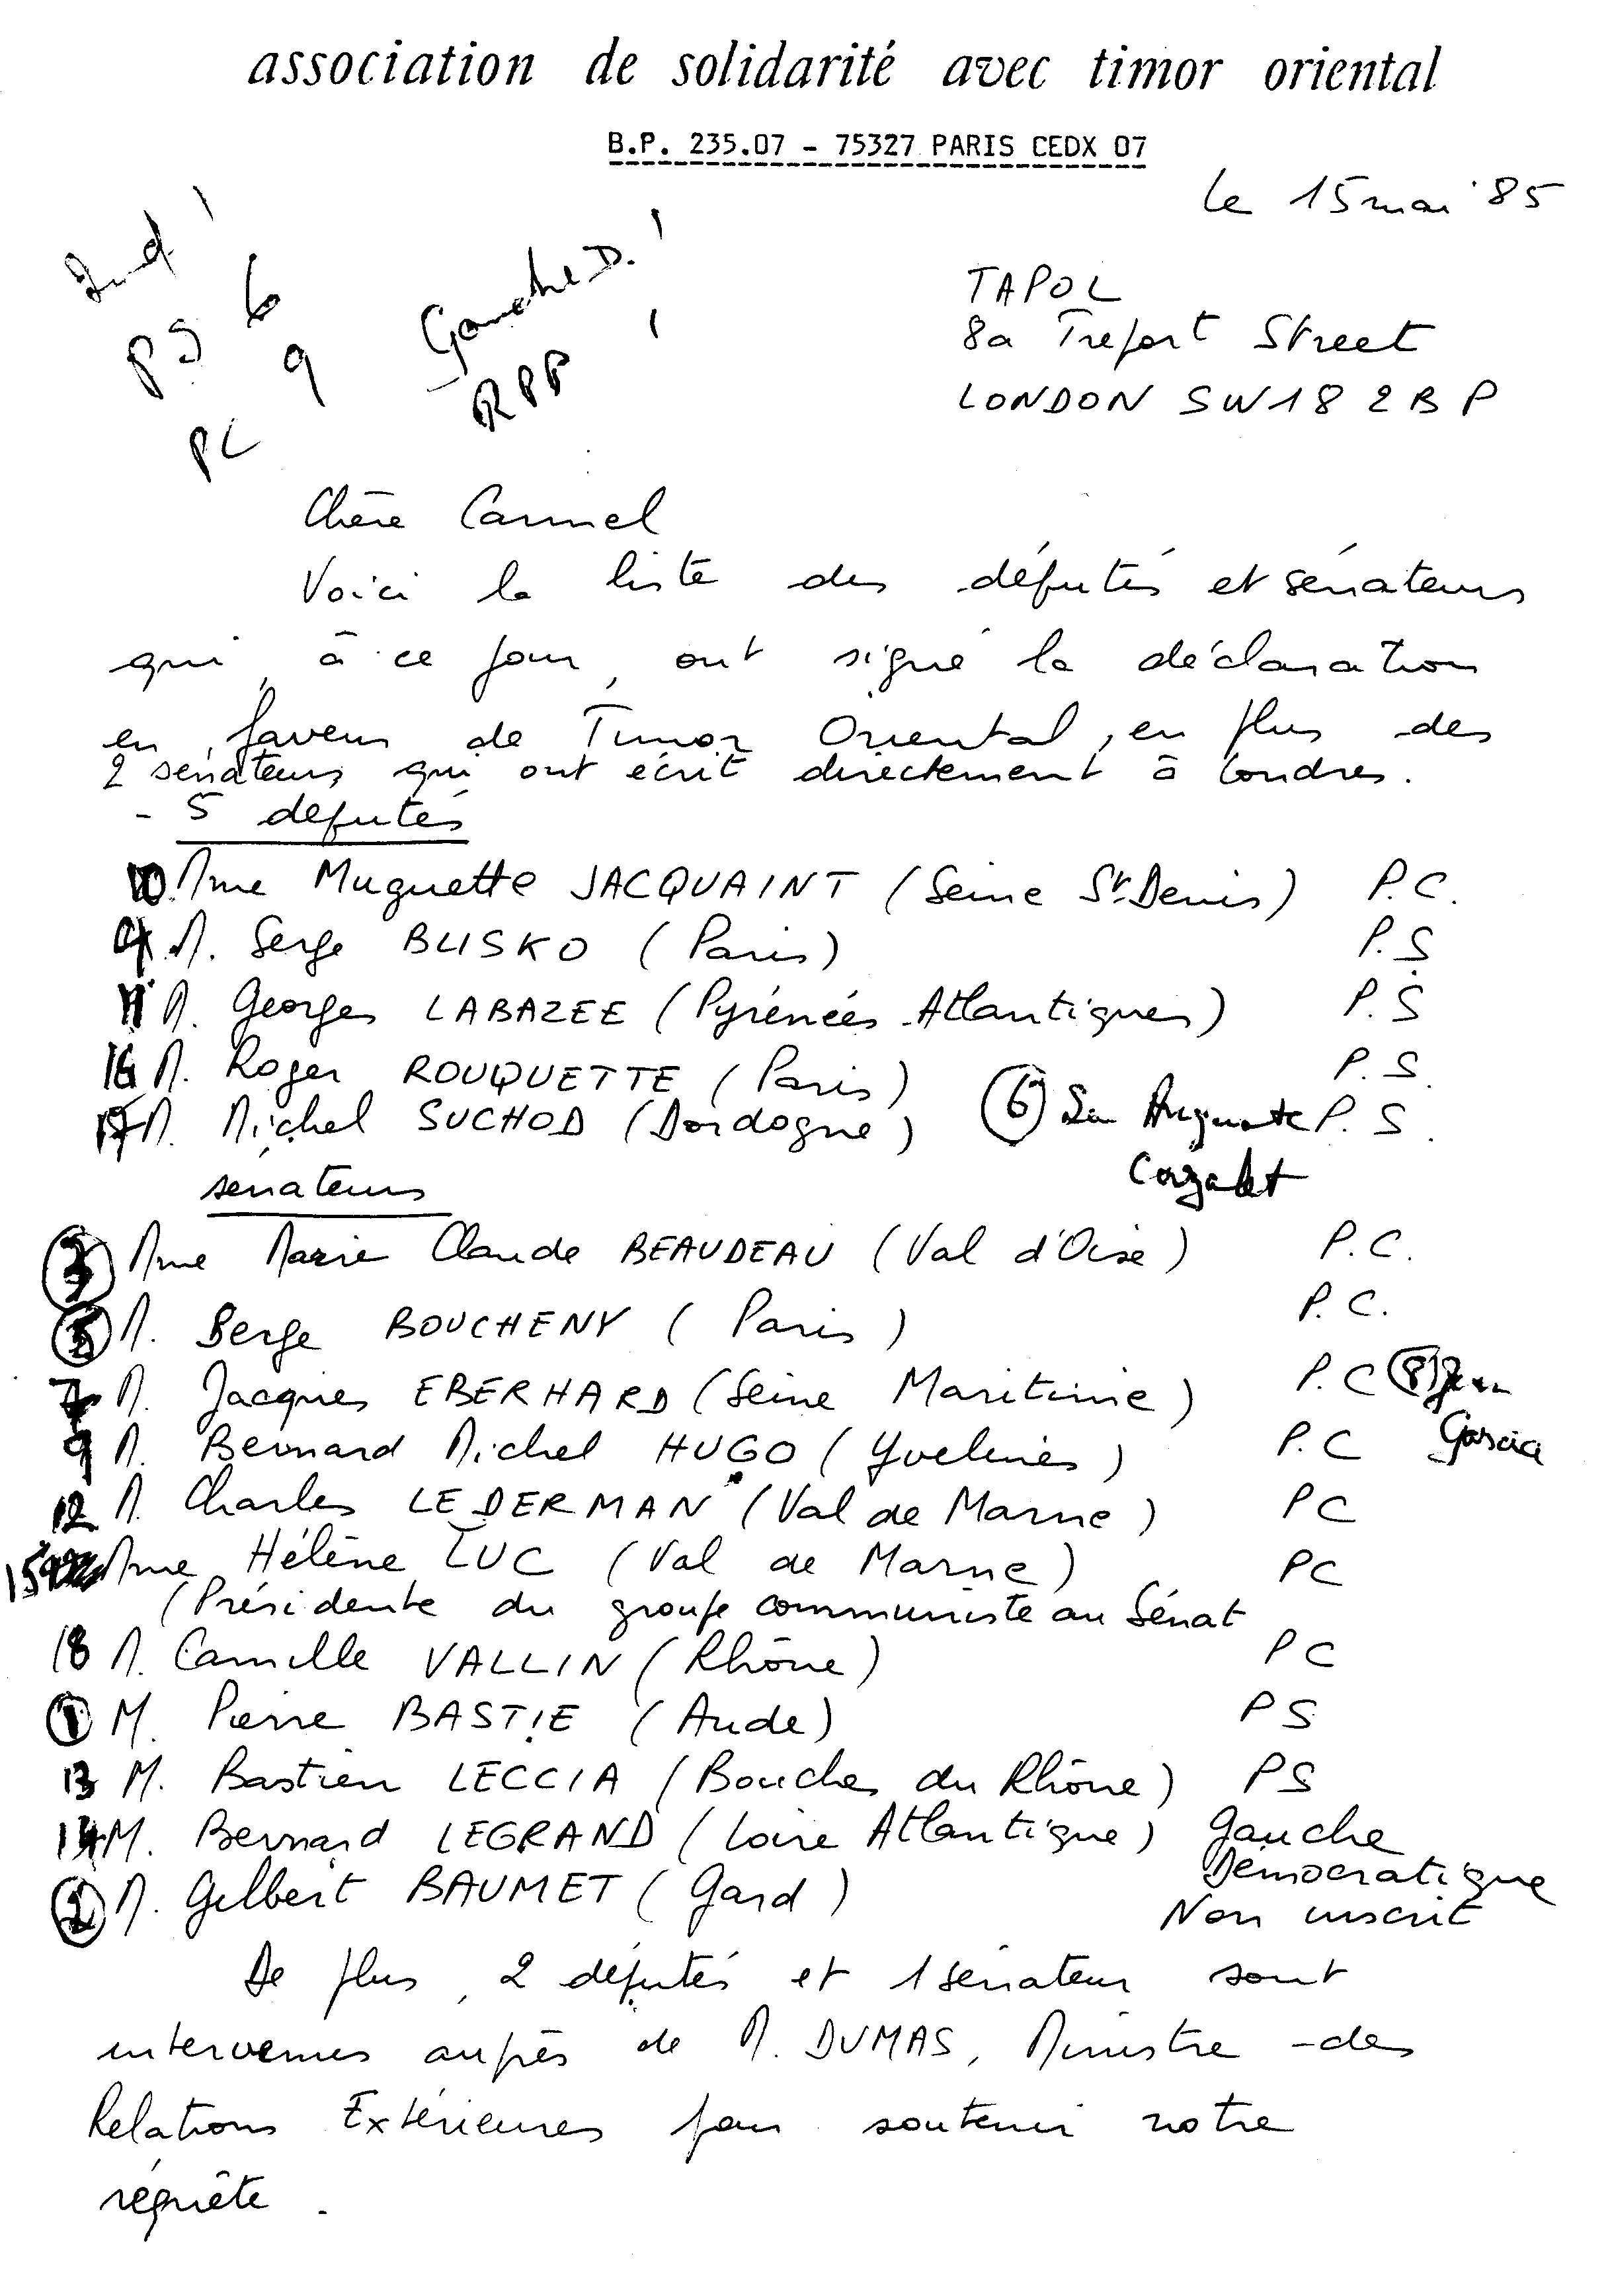 association de solidarité avec timor oriental
B.P. 235.07 - 75327 PARIS CEDX 07
le 15 mai '85
Ind 1
PS 6
PC 9
Gauche D. 1
RPR 1
TAPOL
8a Treport Street
LONDON SW18 2BP
Chère Carmel
Voici la liste des députés et sénateurs
qui, à ce jour, ont signé la déclaration
en faveur de Timor Oriental, en plus des
2 sénateurs qui ont écrit directement à Londres.
- 5 députés
10 Mme Muguette JACQUAINT (Seine St. Denis) P.C.
4 M. Serge BLISKO (Paris) P.S
11 M. Georges LABAZEE (Pyrénées-Atlantiques) P.S
16 M. Roger ROUQUETTE (Paris) P.S.
17 M. Michel SUCHOD (Dordogne) P.S.
(6) Sen Auguste
Cazalet
sénateurs
3 Mme Marie Claude BEAUDEAU (Val d'Oise) P.C.
5 M. Serge BOUCHENY (Paris) P.C.
7 M. Jacques EBERHARD (Seine Maritime) P.C (8) Jean
Garcia
9 M. Bernard Michel HUGO (Yvelines) P.C
12 M. Charles LEDERMAN (Val de Marne) PC
15 Mme Hélène LUC (Val de Marne) PC
(Présidente du groupe communiste au Sénat
18 M. Camille VALLIN (Rhône) PC
1 M. Pierre BASTIE (Aude) PS
13 M. Bastien LECCIA (Bouches du Rhône) PS
14 M. Bernard LEGRAND (Loire Atlantique) Gauche
Démocratique
2 M. Gilbert BAUMET (Gard) Non inscrit
De plus, 2 députés et 1 sénateur sont
intervenus auprès de M. DUMAS, Ministre des
Relations Extérieures pour soutenir notre
requête.